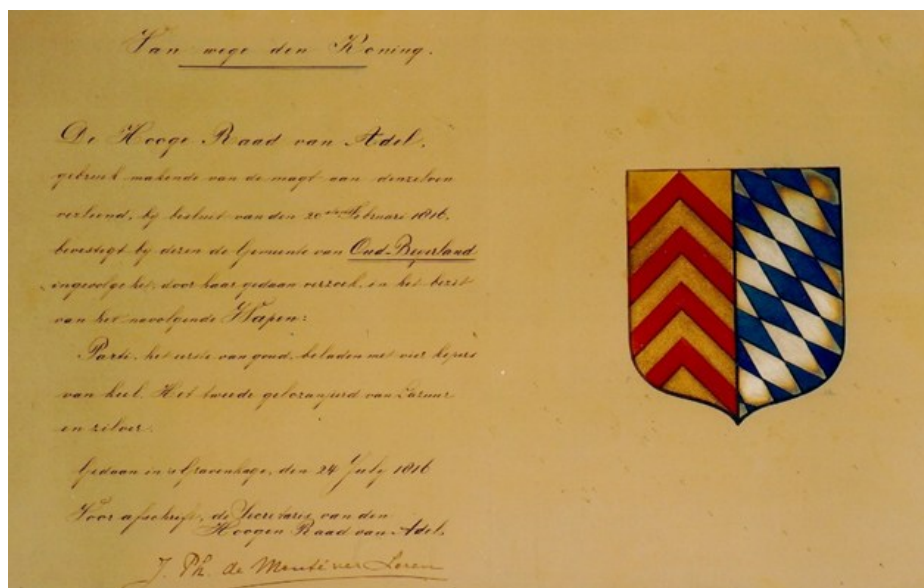 Van wege den Koning.
De Hooge Raad van Adel,
gebruik makende van de magt aan denzelven
verleend, bij besluit van den 20 Februari 1816,
bevestigt bij dezen de Gemeente van Oud-Beverland
ingevolge het, door haar gedaan verzoek, in het bezit
van het navolgende Wapen:
Parti, het eerste van goud, beladen met vier kepers
van keel. Het tweede gelozanjeerd van Lazuur
en zilver.
Gedaan in 's Gravenhage, den 24 July 1816
Voor afschrift, de Secretaris van den
Hoogen Raad van Adel,
J. Ph. de Monté ver Loren